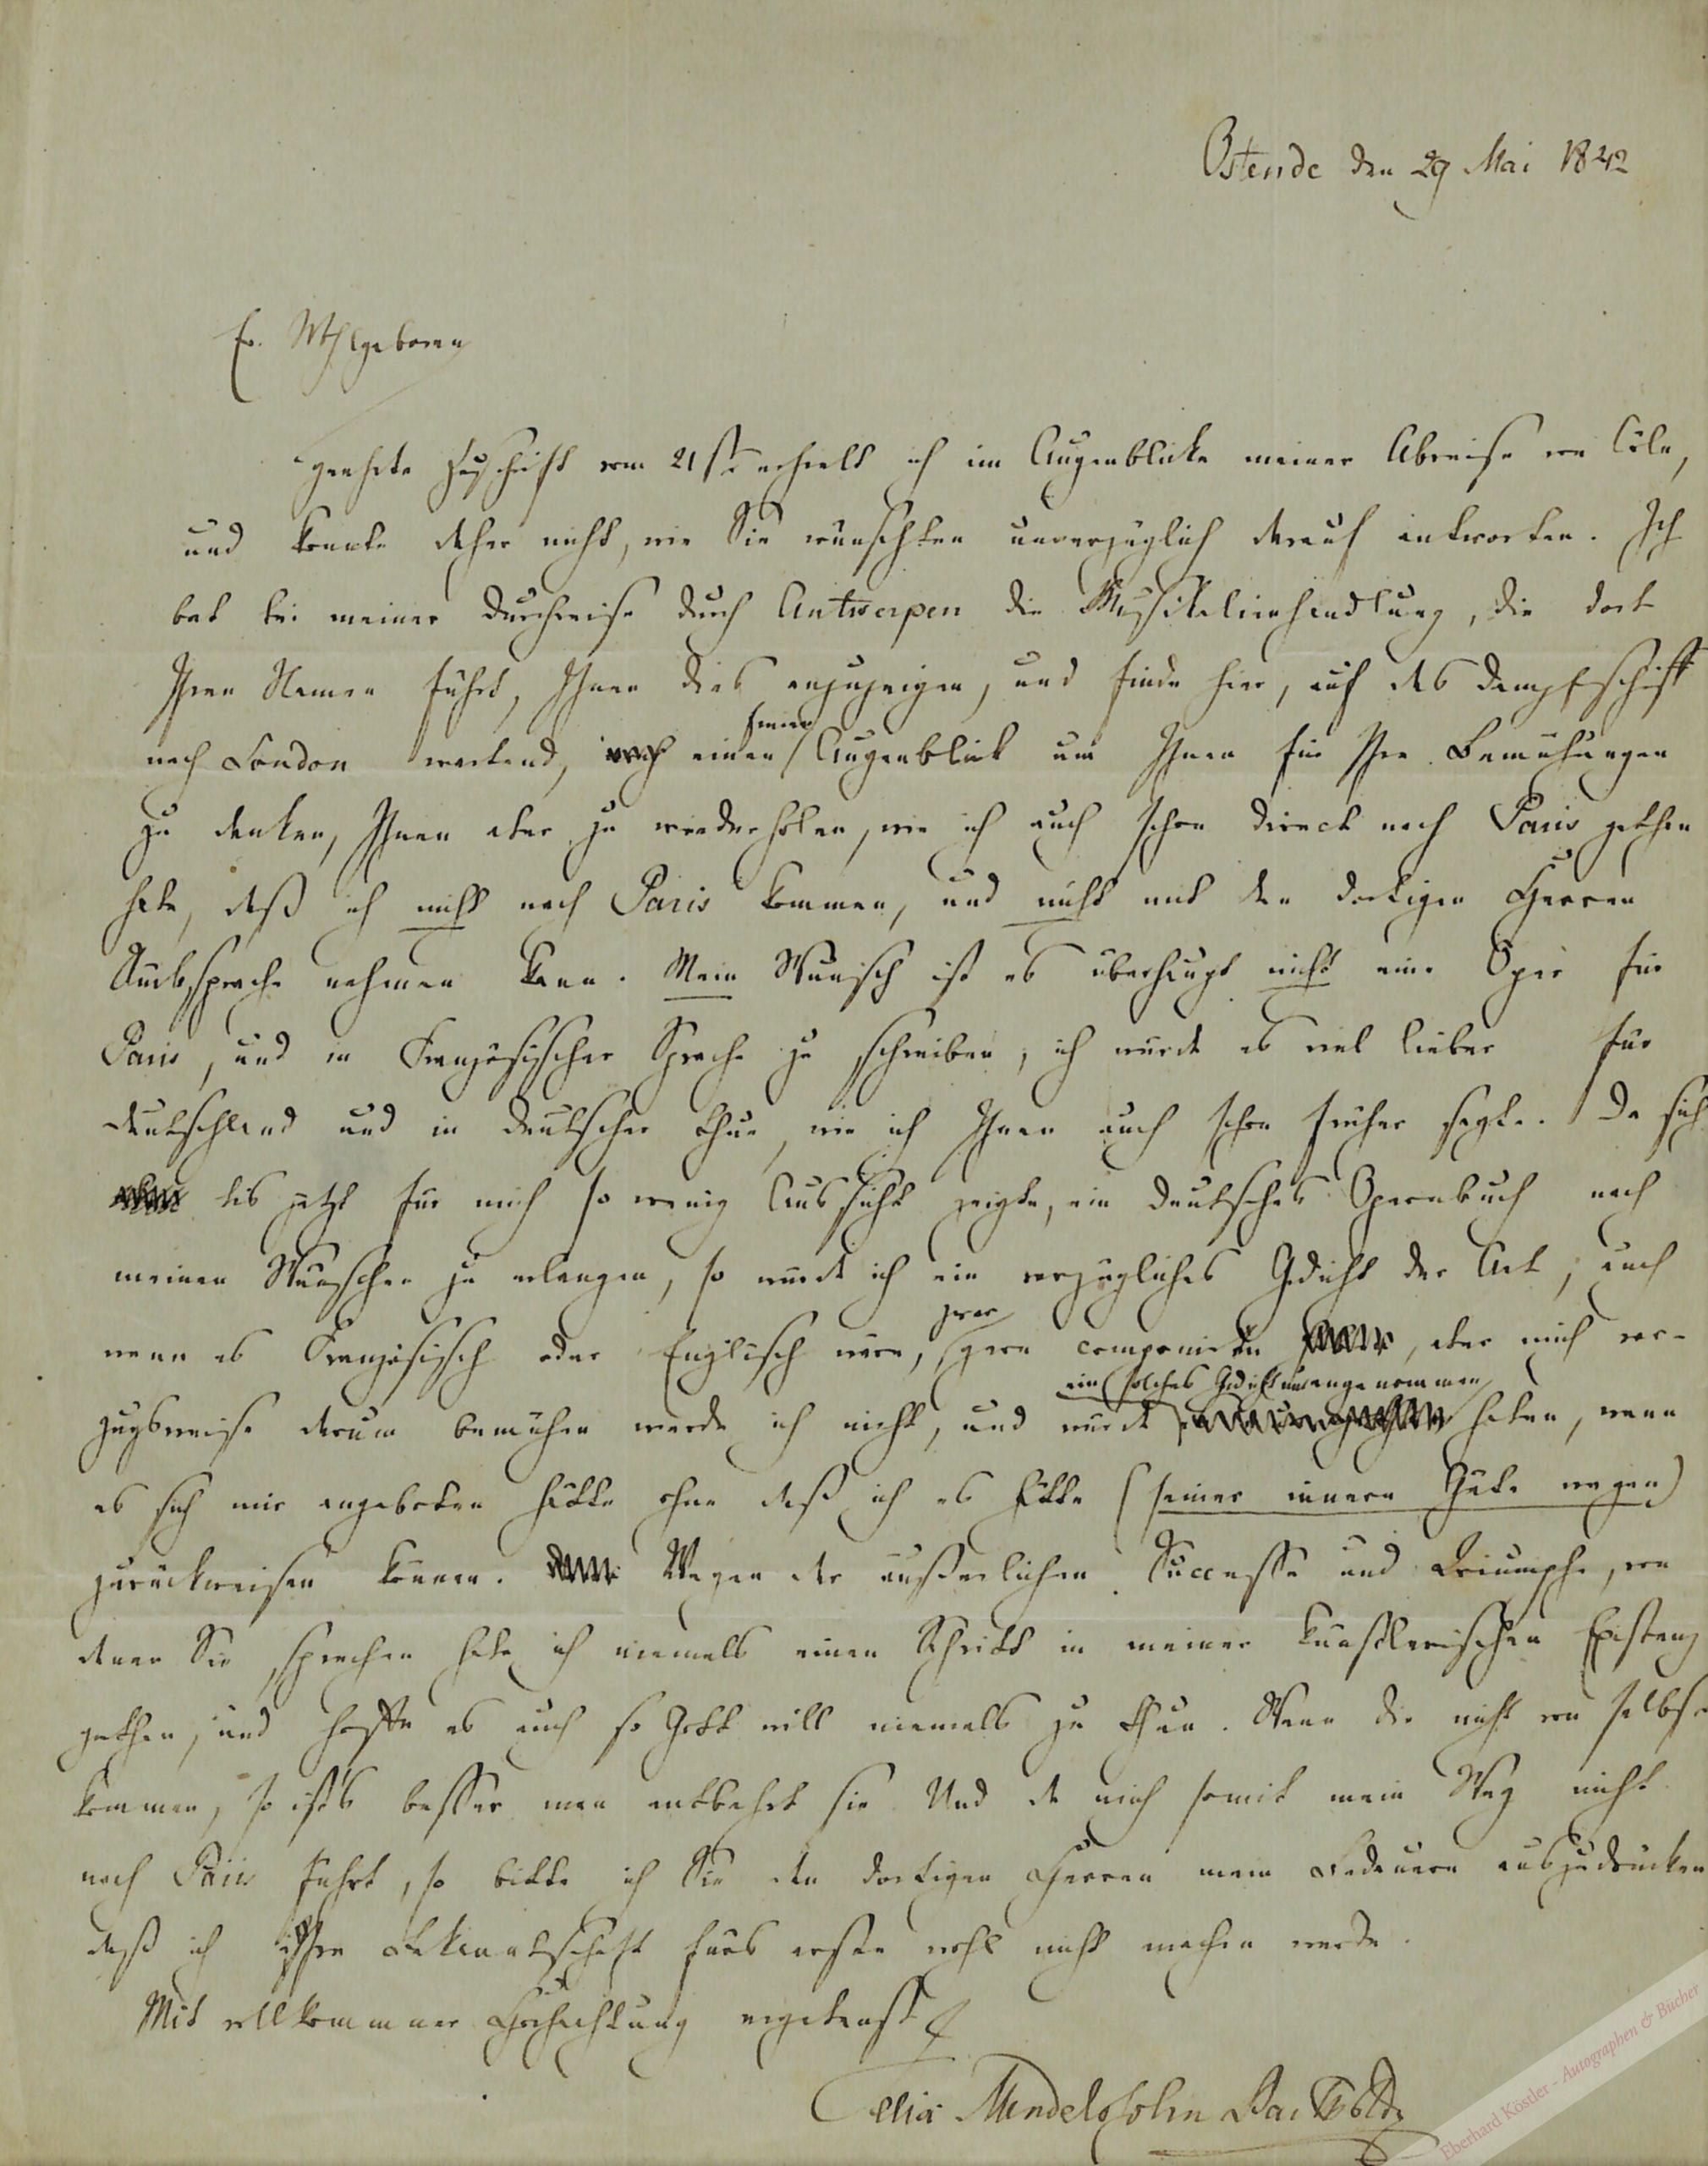 Ostende den 29 Mai 1842
Ew. Wohlgeboren
geehrte Zuschrift vom 21sten erhielt ich im Augenblicke meiner Abreise von Cöln,
und konnte daher nicht, wie Sie wünschten unverzüglich darauf antworten. Ich
bat bei meiner Durchreise durch Antwerpen die Musikalienhandlung, die dort
Ihren Namen führt, Ihnen dies anzuzeigen, und finde hier, auf das Dampfschiff
nach London wartend, noch einen freien Augenblick um Ihnen für Ihre Bemühungen
zu danken, Ihnen aber zu wiederholen, wie ich auch schon direct nach Paris gethan
habe, daß ich nicht nach Paris kommen, und nicht mit den dortigen Herren
Rücksprache nehmen kann. Mein Wunsch ist es überhaupt nicht eine Oper für
Paris, und in Französischer Sprache zu schreiben, ich würde es viel lieber für
Deutschland und in Deutscher thun, wie ich Ihnen auch schon früher sagte. Da sich
bis jetzt für mich so wenig Aussicht zeigte, ein Deutsches Opernbuch nach
meinen Wünschen zu erlangen, so würde ich ein vorzügliches Gedicht der Art, auch
wenn es Französisch oder Englisch wäre, zwar gern componiren, aber mich vor-
zugsweise darum bemühen werde ich nicht, und würde ein solches Gedicht nur angenommen haben, wenn
es sich mir angeboten hätte ohne daß ich es hätte (seiner innern Güte wegen)
zurückweisen können. Wegen der äußerlichen Successe und Triumphe, von
denen Sie sprechen habe ich niemals einen Schritt in meiner künstlerischen Existenz
gethan, und hoffe es auch so Gott will niemals zu thun. Wenn die nicht von selbst
kommen, so ist's besser man entbehrt sie. Und da mich somit mein Weg nicht
nach Paris führt, so bitte ich Sie den dortigen Herren mein Bedauern auszudrücken
daß ich Ihre Bekanntschaft fürs erste wohl nicht machen werde.
Mit vollkommner Hochachtung ergebenst
Felix Mendelssohn Bartholdy
Eberhard Köstler - Autographen & Bücher